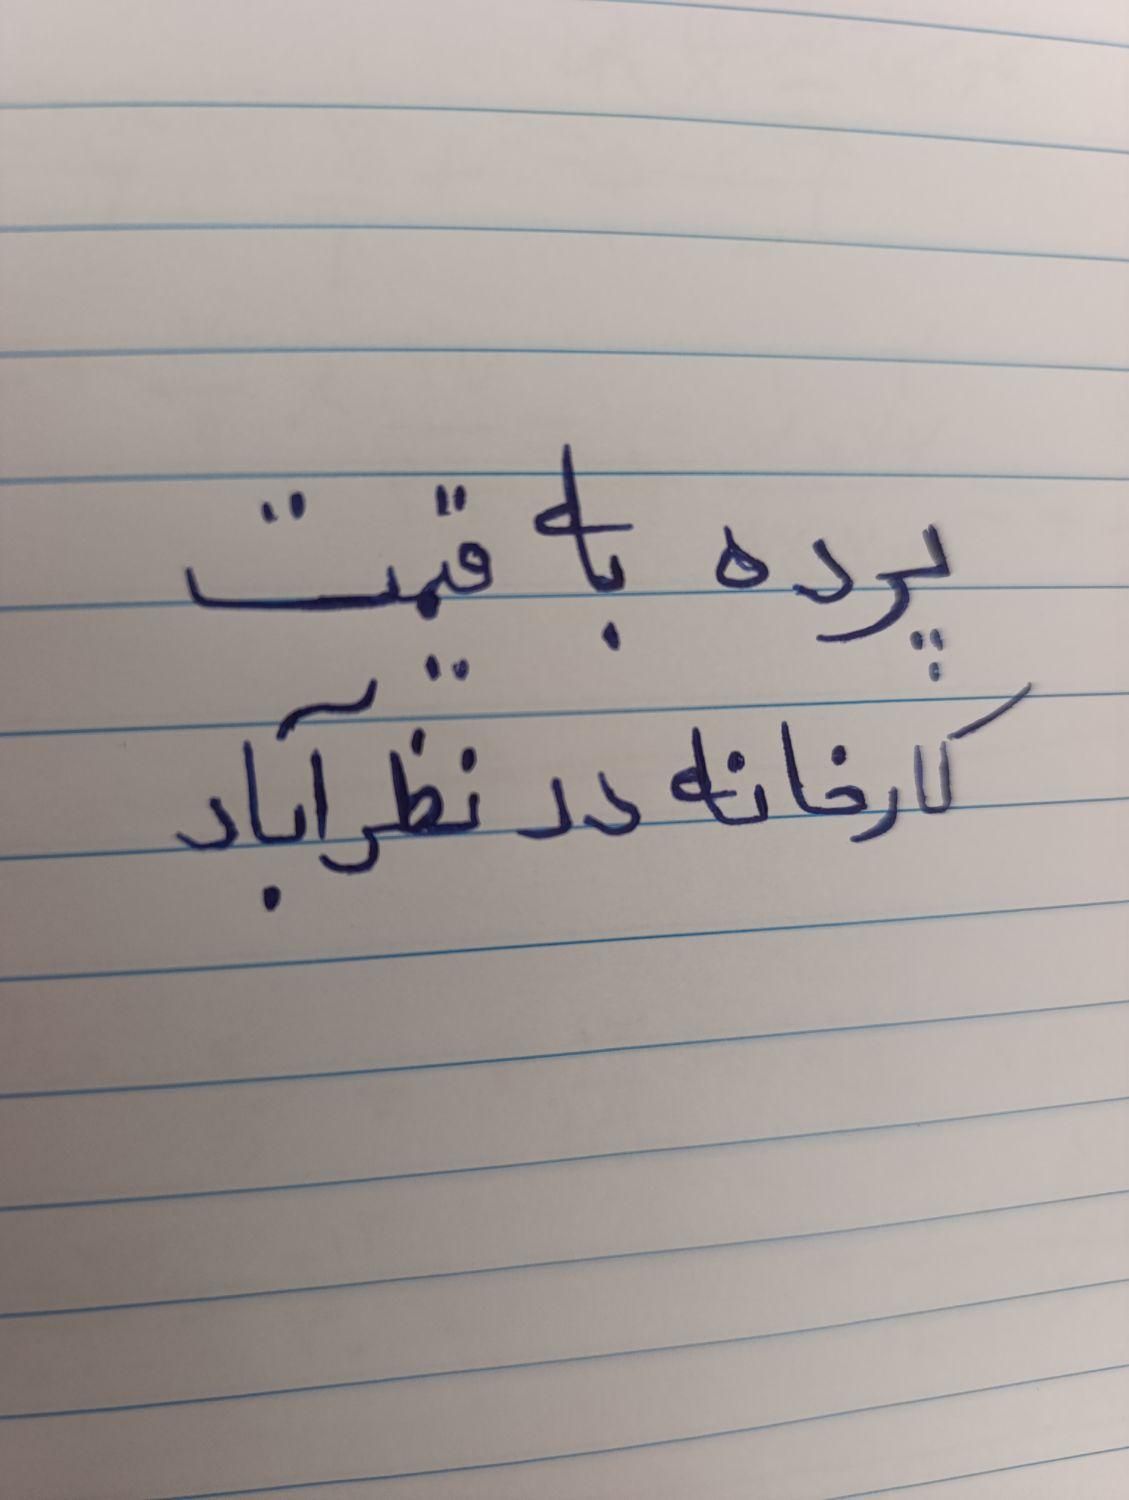 پرده به قیمت
کارخانه در نظرآباد